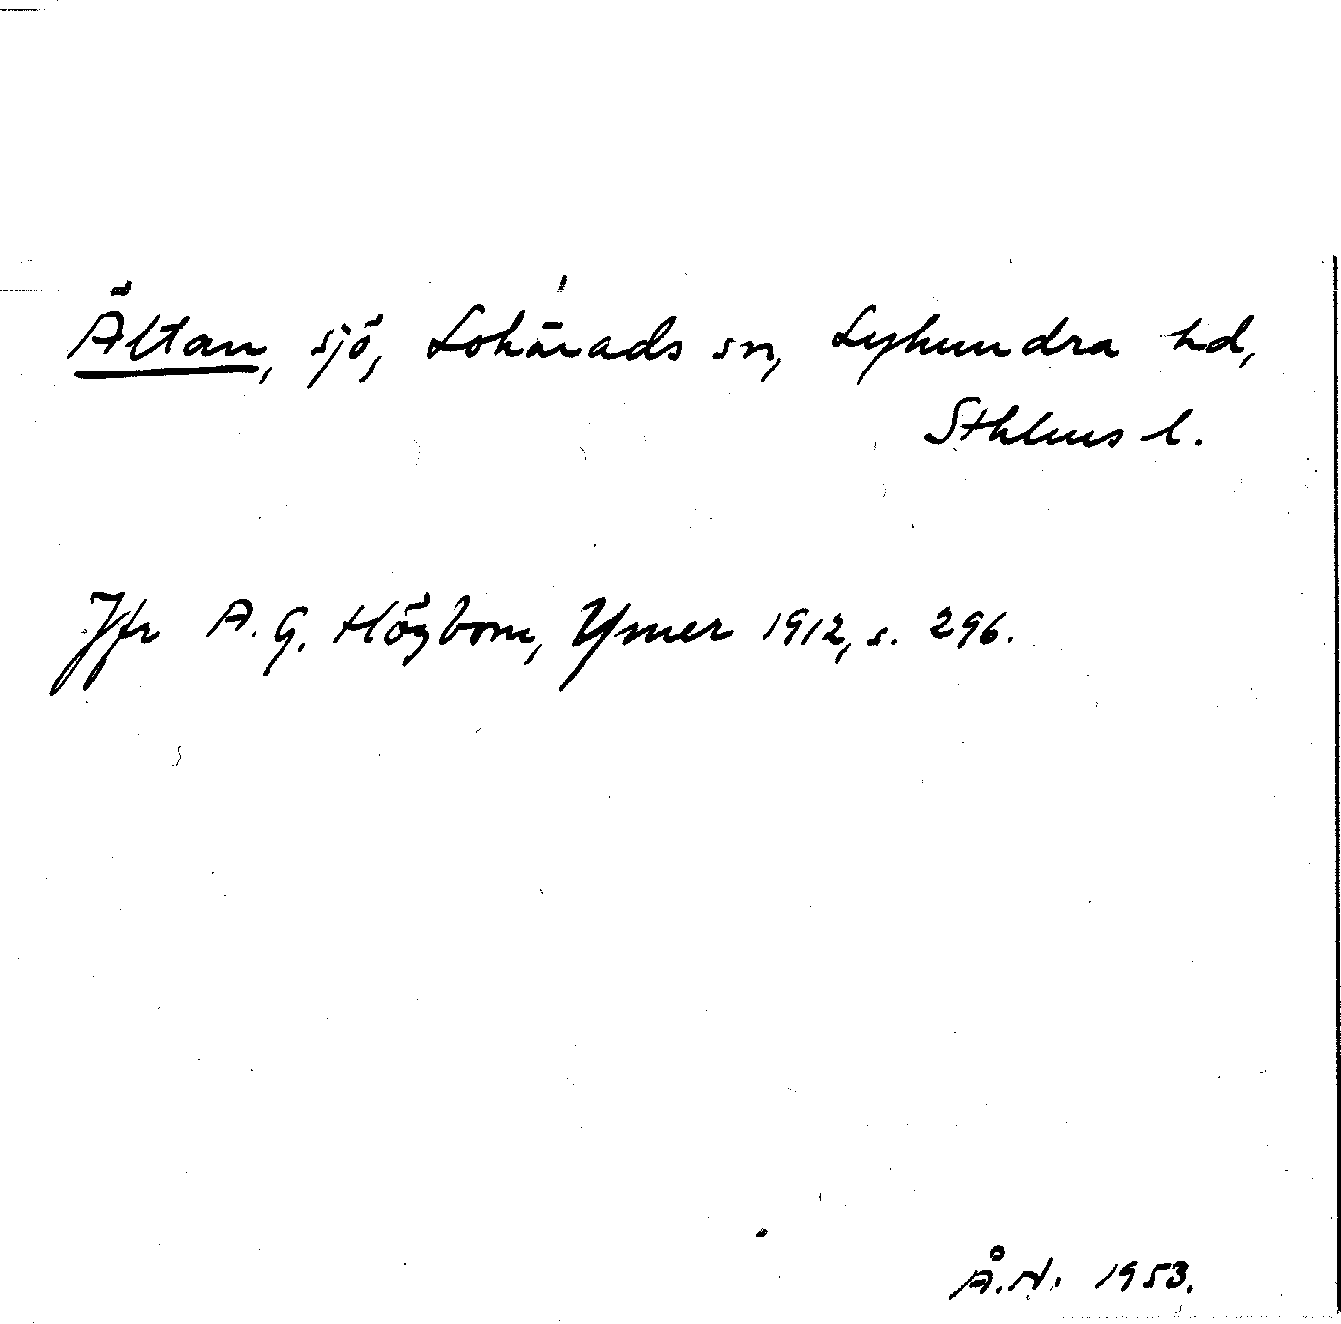 Ältan, sjö, Lohärads sn, Lyhundra hd,
Sthlms l.
Jfr A. G. Högbom, Ymer 1912, s. 296.
Å.N. 1953.